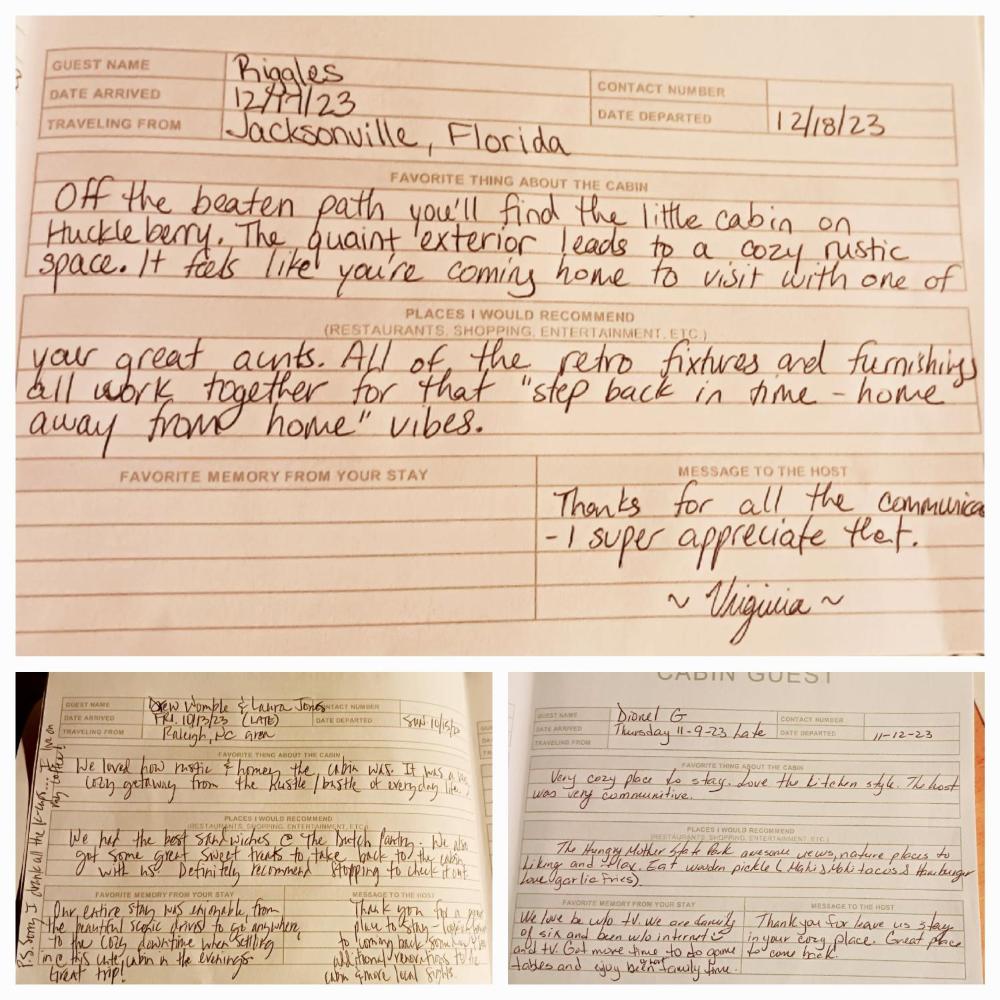 GUEST NAME Riggles CONTACT NUMBER
DATE ARRIVED 12/17/23 DATE DEPARTED 12/18/23
TRAVELING FROM Jacksonville, Florida
FAVORITE THING ABOUT THE CABIN
Off the beaten path you'll find the little cabin on
Huckleberry. The quaint exterior leads to a cozy rustic
space. It feels like you're coming home to visit with one of
PLACES I WOULD RECOMMEND
(RESTAURANTS, SHOPPING, ENTERTAINMENT, ETC.)
your great aunts. All of the retro fixtures and furnishings
all work together for that "step back in time - home
away from home" vibes.
FAVORITE MEMORY FROM YOUR STAY
MESSAGE TO THE HOST
Thanks for all the communica
- I super appreciate that.
~ Virginia ~
GUEST NAME Drew Womple & Laura Jones CONTACT NUMBER
DATE ARRIVED FRI. 10/13/23 (LATE) DATE DEPARTED SUN 10/15/23
TRAVELING FROM Raleigh, NC area
FAVORITE THING ABOUT THE CABIN
We loved how rustic & homey the cabin was. It was a
cozy getaway from the hustle / bustle of everyday life.
PLACES I WOULD RECOMMEND
(RESTAURANTS, SHOPPING, ENTERTAINMENT, ETC.)
We had the best sandwiches @ The Dutch Pantry. We also
got some great sweet treats to take back to the cabin
with us. Definitely recommend stopping to check it out
FAVORITE MEMORY FROM YOUR STAY
Our entire stay was enjoyable, from
the beautiful scenic drives to go anywhere,
to the cozy downtime when settling
in @ this cute cabin in the evenings.
Great trip!
MESSAGE TO THE HOST
Thank you for a great
place to stay -
to coming back
additional renovations to the
cabin & more local sights.
P.S. Sorry I drank all the K-cups... I live on
CABIN GUEST
GUEST NAME Dionel G CONTACT NUMBER
DATE ARRIVED Thursday 11-9-23 Late DATE DEPARTED 11-12-23
TRAVELING FROM
FAVORITE THING ABOUT THE CABIN
Very cozy place to stay. Love the kitchen style. The host
was very communitive.
PLACES I WOULD RECOMMEND
(RESTAURANTS, SHOPPING, ENTERTAINMENT, ETC.)
The Hungry Mother State Park awesome views, nature places to
hiking and relax. Eat wooden pickle (Mahi Mahi tacos & Hamburger
Love garlic fries).
FAVORITE MEMORY FROM YOUR STAY
We love be w/o TV. We are family
of six and been w/o internet
and TV. Get more time to do game
tables and enjoy been family time.
MESSAGE TO THE HOST
Thank you for leave us stay
in your cozy place. Great place
to come back.